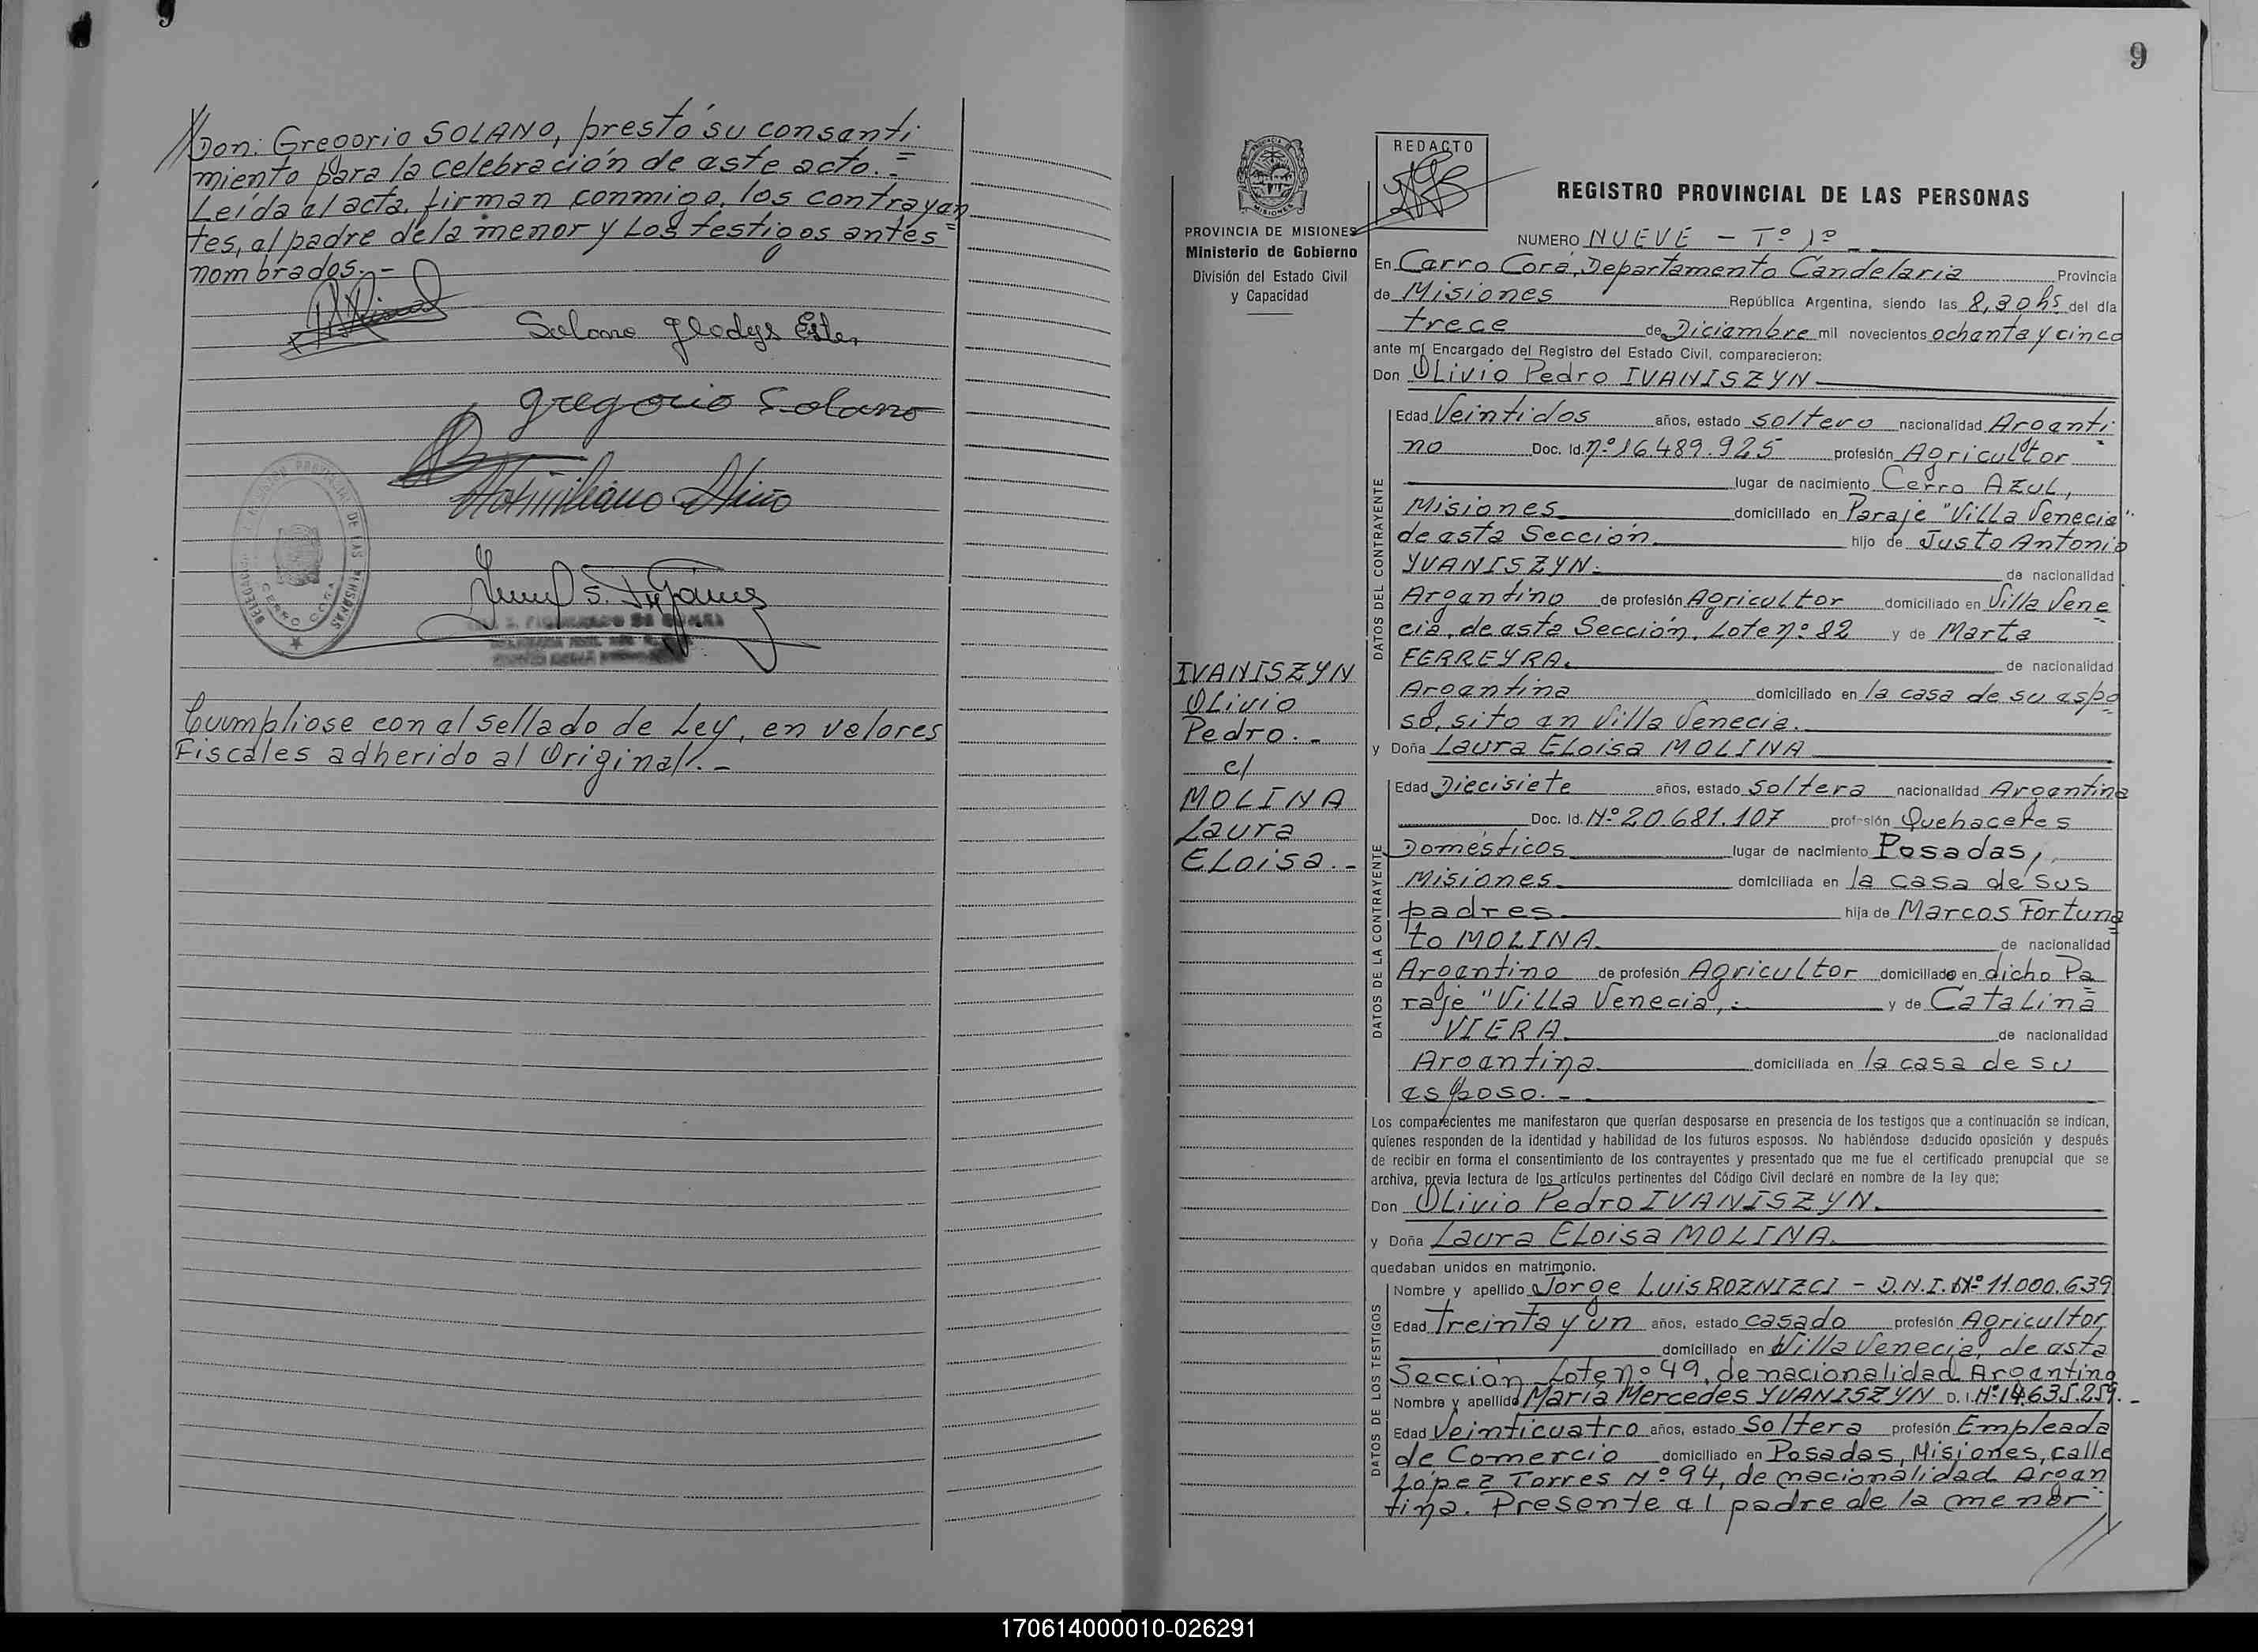 //Don: Gregorio SOLANO, prestó su consenti
miento para la celebración de este acto.=
Leída el acta, firman conmigo, los contrayen
tes, el padre de la menor y Los testigos antes=
nombrados.-
Solano Gladys Ester
Gregorio Solano
Maximiliano
CERRO CORA
Cumpliose con el sellado de Ley, en valores
Fiscales adherido al Original.-
9
PROVINCIA DE MISIONES
Ministerio de Gobierno
División del Estado Civil
y Capacidad
IVANISZYN
Olivio
Pedro.-
c/
MOLINA
Laura
ELoisa.-
REDACTO
REGISTRO PROVINCIAL DE LAS PERSONAS
NUMERO NUEVE - Tº 1º
En Cerro Corá, Departamento Candelaria Provincia
de Misiones República Argentina, siendo las 8,30 hs. del día
trece de Diciembre mil novecientos ochenta y cinco
ante mí Encargado del Registro del Estado Civil, comparecieron:
Don OLivio Pedro IVANISZYN
DATOS DEL CONTRAYENTE
Edad Veintidos años, estado soltero nacionalidad Argenti
no Doc. Id. nº 16.489.925 profesión Agricultor
lugar de nacimiento Cerro AZUL,
Misiones domiciliado en Paraje "Villa Venecia"
de esta Sección. hijo de Justo Antonio
YVANISZYN. de nacionalidad
Argentino de profesión Agricultor domiciliado en Villa Vene
cia, de esta Sección, Lote nº 82 y de Marta
FERREYRA. de nacionalidad
Argentina domiciliado en la casa de su espo
so, sito en Villa Venecia.
y Doña Laura ELoisa MOLINA
DATOS DE LA CONTRAYENTE
Edad Diecisiete años, estado Soltera nacionalidad Argentina
Doc. Id. Nº 20.681.107 profesión Quehaceres
Domésticos lugar de nacimiento Posadas,
Misiones domiciliada en la casa de sus
padres hija de Marcos Fortuna
to MOLINA. de nacionalidad
Argentino de profesión Agricultor domiciliado en dicho Pa
raje "Villa Venecia", y de Catalina
VIERA. de nacionalidad
Argentina domiciliada en la casa de su
esposo.-
Los comparecientes me manifestaron que querían desposarse en presencia de los testigos que a continuación se indican,
quienes responden de la identidad y habilidad de los futuros esposos. No habiéndose deducido oposición y después
de recibir en forma el consentimiento de los contrayentes y presentado que me fue el certificado prenupcial que se
archiva, previa lectura de los artículos pertinentes del Código Civil declaré en nombre de la ley que:
Don OLivio Pedro IVANISZYN.
y Doña Laura ELoisa MOLINA.
quedaban unidos en matrimonio.
DATOS DE LOS TESTIGOS
Nombre y apellido Jorge Luis ROZNIZCI - D.N.I. Nº 11.000.639
Edad Treinta y un años, estado casado profesión Agricultor
domiciliado en Villa Venecia, de esta
Sección Lote nº 49, de nacionalidad Argentino
Nombre y apellido María Mercedes YVANISZYN D.I. Nº 14.635.259.-
Edad Veinticuatro años, estado Soltera profesión Empleada
de Comercio domiciliado en Posadas, Misiones, calle
López Torres Nº 94, de nacionalidad Argen
tina. Presente el padre de la menor
//
170614000010-026291